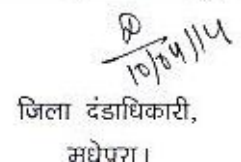 10/04/14
जिला दंडाधिकारी,
मधेपुरा।